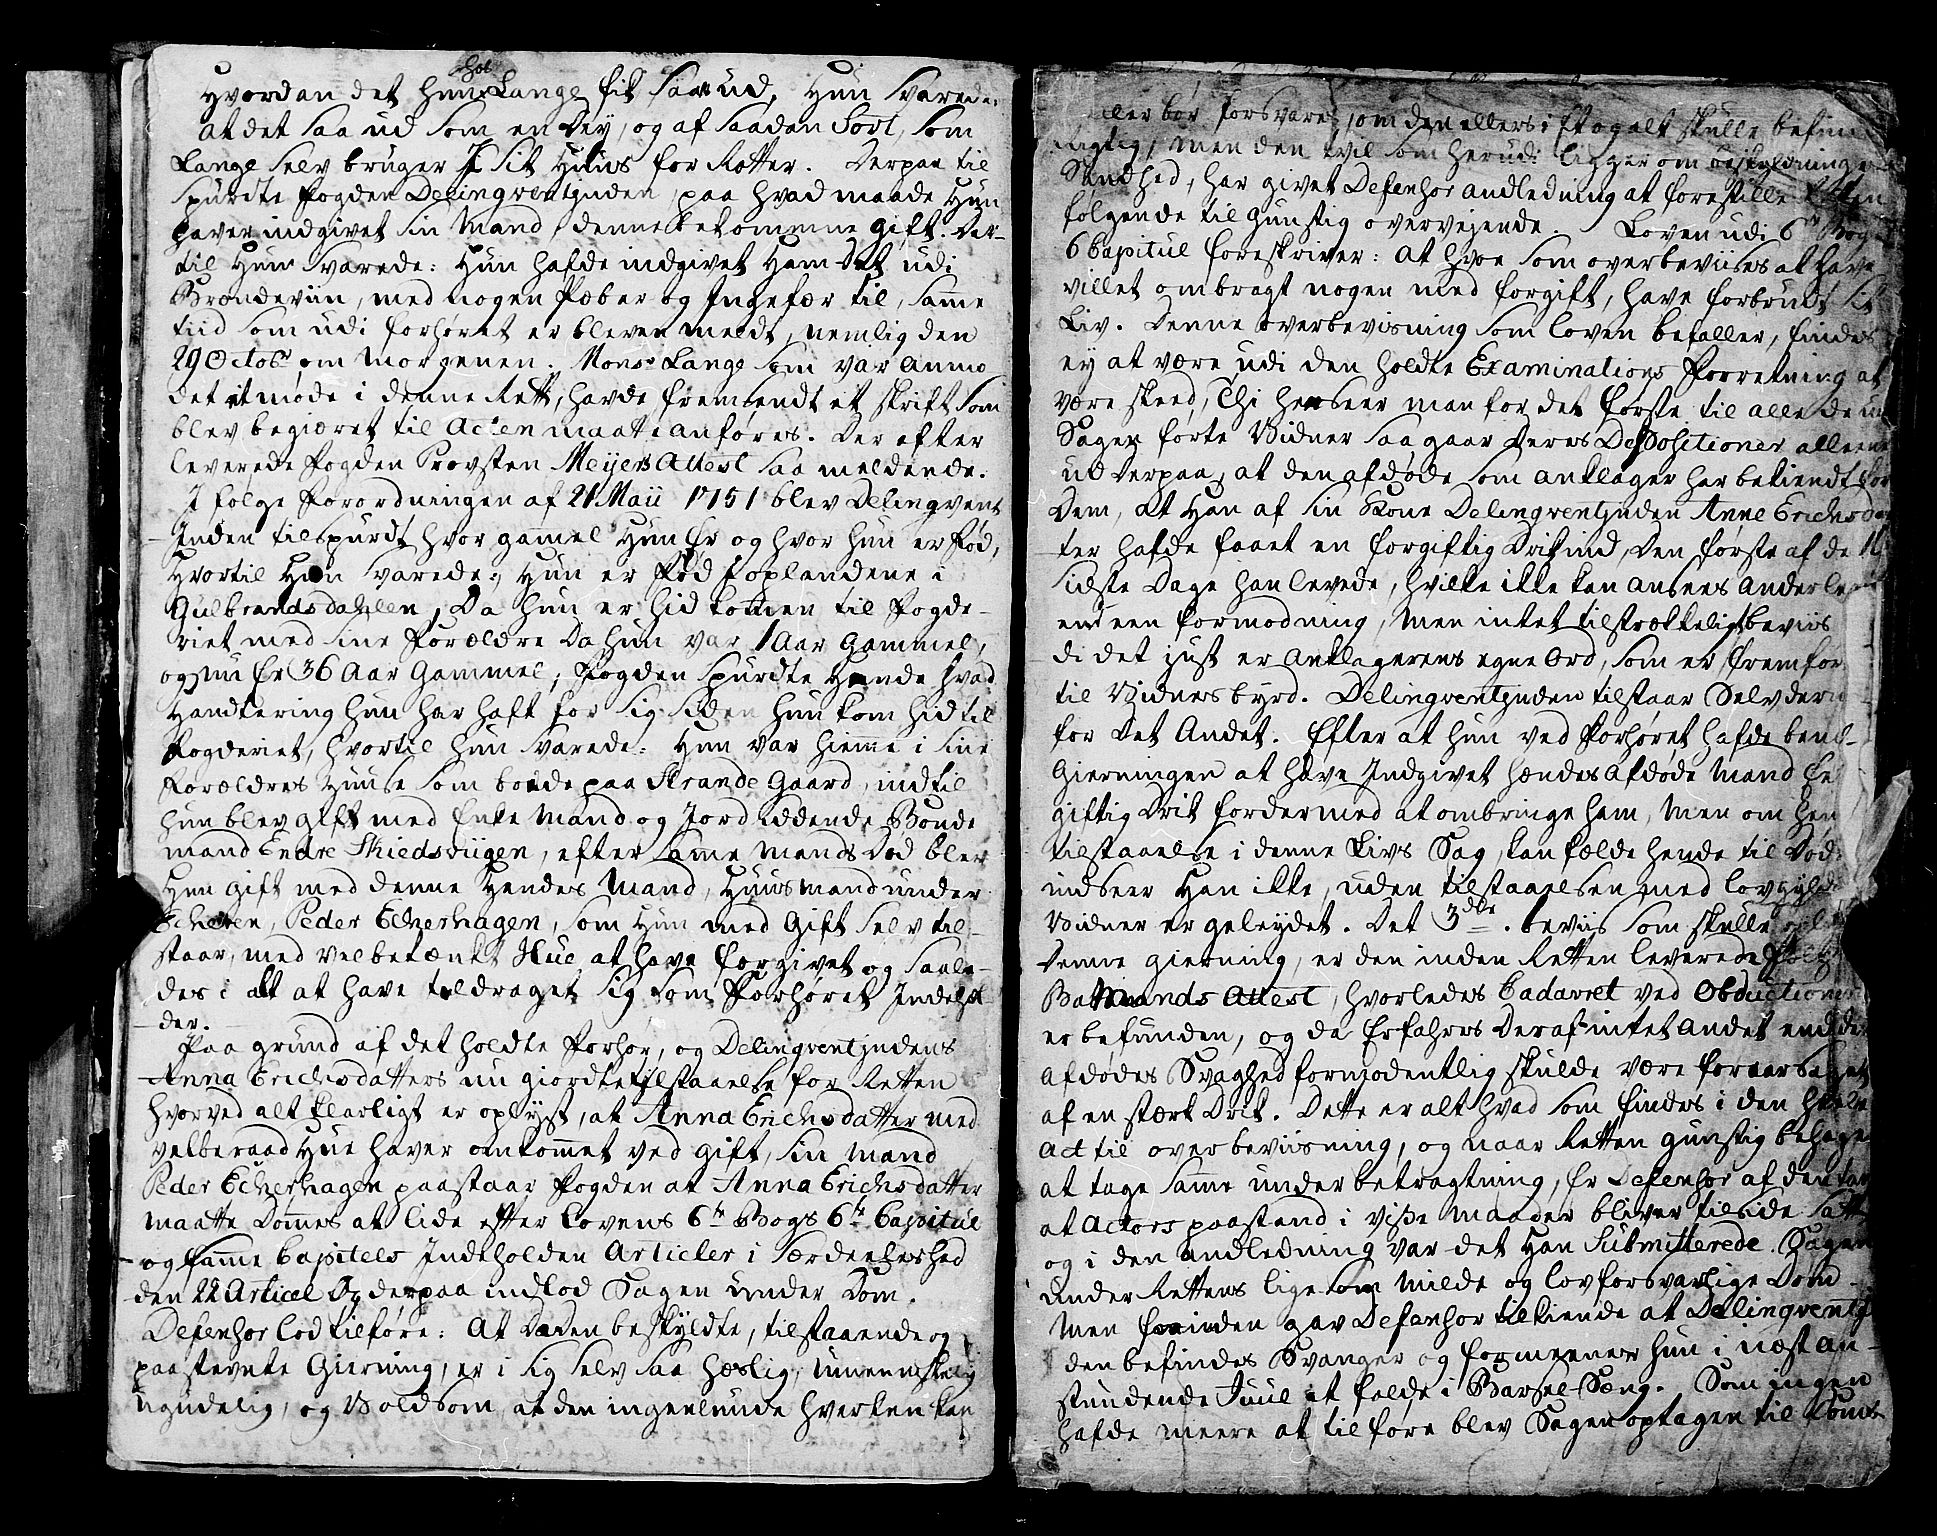 Hvordan det hun hos Lange fik saae ud, Hun svarede:
at det saa ud som en Dey, og af saadan Sort, som
Lange selv bruger I sit Huus for Rotter. Derpaa til
spurdte Fogden Delinqventinden, paa hvad maade Hun
haver indgivet sin Mand denne bekommene Gift. Der-
til Hun svarede: Hun hafde indgivet Ham Det udi
Brændeviin, med nogen Peber og Ingefær til, samme
tiid som udi forhøret er bleven meldt, nemlig den
29 Octobr om Morgenen. Monsr Lange som var anmo
det at møde i denne Rett, havde fremsendt et skrift som
blev begiæret til Acten maatte anføres. Der efter
leverede Fogden Provsten Meyers Attest saa meldende.
I følge Forordningen af 21 Maii 1751 blev Delinqvent
Inden tilspurdt hvor gammel Hun Er og hvor hun er Fød,
Hvortil Hun svarede: Hun er Fød i oplandene i
Gulbrandsdahlen, Da hun er hid kommen til Fogde-
riet med sine Forældre Da hun var 1 Aar Gammel,
og nu Er 36 Aar Gammel, Fogden spurdte Hende hvad
Handtering hun har haft for sig siden hun kom hid til
Fogderiet, hvortil hun svarede: Hun var hiemme i sine
Forældres Huuse som boede paa Strande Gaard, indtil
hun blev gift med Enke Mand og Jord iddende Bonde
mand Endre Skiedsviigen, efter samme Mands Død blev
Hun gift med denne Hendes Mand, Huusmand under
Echeren, Peder Echerhagen, som Hun med Gift selv til-
staar, med velbetænkt Hue at have forgivet og saale-
des i alt at have tildraget sig som Forhøret Indehol
der.
Paa grund af det holdte Forhør, og Delinqventindens
Anna Erichsdatters nu giordte tilstaaelse for Retten
hvorved alt klarligt er oplyst, at Anna Erichsdatter med
velberaad Hue haver omkommet ved gift, sin Mand
Peder Echerhagen paastaar Fogden at Anna Erichsdatter
maatte Dømmes at lide efter Lovens 6te Bogs 6te Capitul
og samme Capitels Indeholden Articler i Særdeeleshed
den 22 Articel Og derpaa indlod Sagen under Dom.
Defensor lod tilføre: At Daden beskyldte, tilstaaende og
paastevnte Gierning, er i sig selv saa hæslig, umenneskelig
ugudelig, og Voldsom at den ingenlunde hverken kan
eller bør forsvares, om den ellers i Et og alt skulle befin
Rigtig, men den tvil som herudi ligger om beskyldningens
Sandhed, har givet Defensor andledning at forestille Retten
følgende til gunstig overvejende. Loven udi 6te Bogs
6 Capitul foreskriver: At hvo som overbeviises at have
villet ombragt nogen med forgift, have forbrudt sit
Liv. Denne overbevisning som loven befaller, findes
ey at være udi den holdte Examinations Forretning at
være skeed, Thi henseer man for det første til alle de ud
Sagen førte Vidner saa gaar Deres Depositioner alleene
ud Derpaa, at den afdøde som anklager har bekiendt for
Dem, at Han af sin Kone Delinqventinden Anne Erichsdat
ter hafde faaet en forgiftig Drik ind, Den første af de 14
sidste Dage han levede, hvilke ikke kan ansees anderledes
end een formodning, men intet tilstrækkeligt beviis
di det just er anklagerens egne Ord, som er fremfør
til Vidnesbyrd. Delinqventinden tilstaar selv dern
for Det Andet. Efter at hun ved Forhøret hafde benæ-
Gierningen at have Indgivet hændes Afdøde Mand
giftig Drik fordermed at ombringe ham, Men om hen
tilstaaelse i denne Livs Sag kan fælde hende til Døde
indseer Han ikke, uden tilstaaelsen med lovgyldi
Vidner er geleydet. Det 3die. beviis som skulle oplyse
Denne gierning, er den inden Retten leverede
Attest, hvorledes Cadavret ved Obductionen
er befunden, og da Erfahres Deraf intet andet end de
afdødes Svaghed formodentlig skulde være foraarsaget
af en stærk Drik. Dette er alt hvad som findes i den heele
Act til overbeviisning, og naar Retten gunstig behager
at tage samme under betragtning, Er Defensor af den tan
at Actors paastand i visse Maader bliver tilside satt
og i den andledning var det Han Submitterede. Sagen
under Rettens lige som milde og lovforsvarlige Dom.
Men forinden gav Defensor tilkiende at Delinqventin
den befindes Svanger og formeener hun i næst an-
stundende Juul at falde i Barsel-Seng. Som ingen
hafde meere at tilføre blev Sagen optagen til Doms